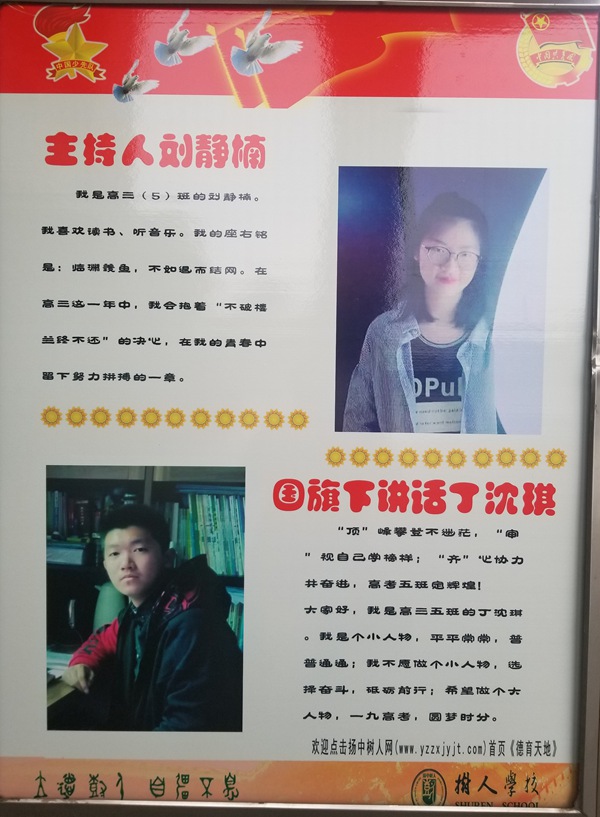 中国少年队
主持人刘静楠
我是高三（5）班的刘静楠。
我喜欢读书、听音乐。我的座右铭
是：临渊羡鱼，不如退而结网。在
高三这一年中，我会抱着“不破楼
兰终不还”的决心，在我的青春中
留下努力拼搏的一章。
国旗下讲话丁沈琪
“顶”峰攀登不迷茫，“审
”视自己学榜样；“齐”心协力
共奋进，高考五班定辉煌！
大家好，我是高三五班的丁沈琪
。我是个小人物，平平常常，普
普通通；我不愿做个小人物，选
择奋斗，砥砺前行；希望做个大
人物，一九高考，圆梦时分。
欢迎点击扬中树人网(www.yzzxjyjt.com)首页《德育天地》
自强不息
树人学校
SHUREN SCHOOL